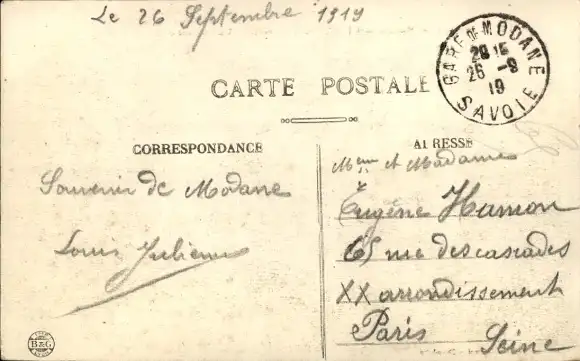 Le 26 Septembre 1919
GARE DE MODANE
20 15
26 -9
19
SAVOIE
CARTE POSTALE
CORRESPONDANCE
ADRESSE
Souvenir de Modane
Louis
Mme et Madame
Eugène Hamon
65 rue des cascades
XX arrondissement
Paris
Seine
B&G